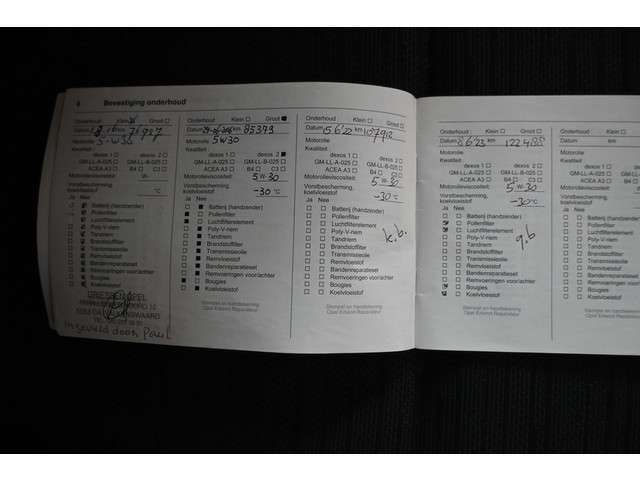 6 Bevestiging onderhoud
Onderhoud Klein Groot
Datum km 76927
Motorolie 5-W30
Kwaliteit
dexos 1 dexos 2
GM-LL-A-025 GM-LL-B-025
ACEA A3 B4 C3
Motorolieviscositeit W-
Vorstbescherming,
koelvloeistof °C
Ja Nee
Batterij (handzender)
Pollenfilter
Luchtfilterelement
Poly-V-riem
Tandriem
Brandstoffilter
Transmissieolie
Remvloeistof
Bandenreparatieset
Remvoeringen voor/achter
Bougies
Koelvloeistof
Ingevuld door Paul
Onderhoud Klein Groot
Datum km 85373
Motorolie 5W30
Kwaliteit
dexos 1 dexos 2
GM-LL-A-025 GM-LL-B-025
ACEA A3 B4 C3
Motorolieviscositeit 5W-30
Vorstbescherming,
koelvloeistof -30°C
Ja Nee
Batterij (handzender)
Pollenfilter
Luchtfilterelement
Poly-V-riem
Tandriem
Brandstoffilter
Transmissieolie
Remvloeistof
Bandenreparatieset
Remvoeringen voor/achter
Bougies
Koelvloeistof
Stempel en handtekening
Opel Erkend Reparateur
Onderhoud Klein Groot
Datum 15 6'22 km 107912
Motorolie
Kwaliteit
dexos 1 dexos 2
GM-LL-A-025 GM-LL-B-025
ACEA A3 B4 C3
Motorolieviscositeit 5W-30
Vorstbescherming,
koelvloeistof -30°C
Ja Nee
Batterij (handzender)
Pollenfilter
Luchtfilterelement
Poly-V-riem
Tandriem
Brandstoffilter
Transmissieolie
Remvloeistof
Bandenreparatieset
Remvoeringen voor/achter
Bougies
Koelvloeistof
k.b.
Stempel en handtekening
Opel Erkend Reparateur
Onderhoud Klein Groot
Datum 8 6'23 km 122485
Motorolie
Kwaliteit
dexos 1 dexos 2
GM-LL-A-025 GM-LL-B-025
ACEA A3 B4 C3
Motorolieviscositeit 5W-30
Vorstbescherming,
koelvloeistof -30°C
Ja Nee
Batterij (handzender)
Pollenfilter
Luchtfilterelement
Poly-V-riem
Tandriem
Brandstoffilter
Transmissieolie
Remvloeistof
Bandenreparatieset
Remvoeringen voor/achter
Bougies
Koelvloeistof
g.b
Stempel en handtekening
Opel Erkend Reparateur
Onderhoud Klein
Datum km
Motorolie
Kwaliteit
dexos 1
GM-LL-A-025
ACEA A3
Motorolieviscositeit
Vorstbescherming,
koelvloeistof
Ja Nee